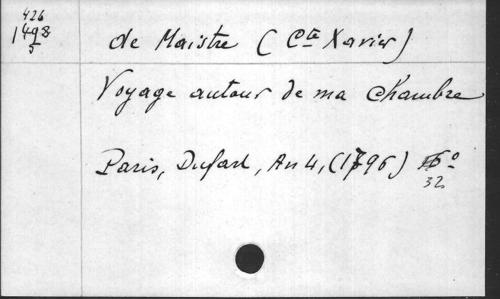 426
1498
5
de Maistre (Cte Xavier)
Voyage autour de ma Chambre
Paris, Dufart, An 4, (1796)
32